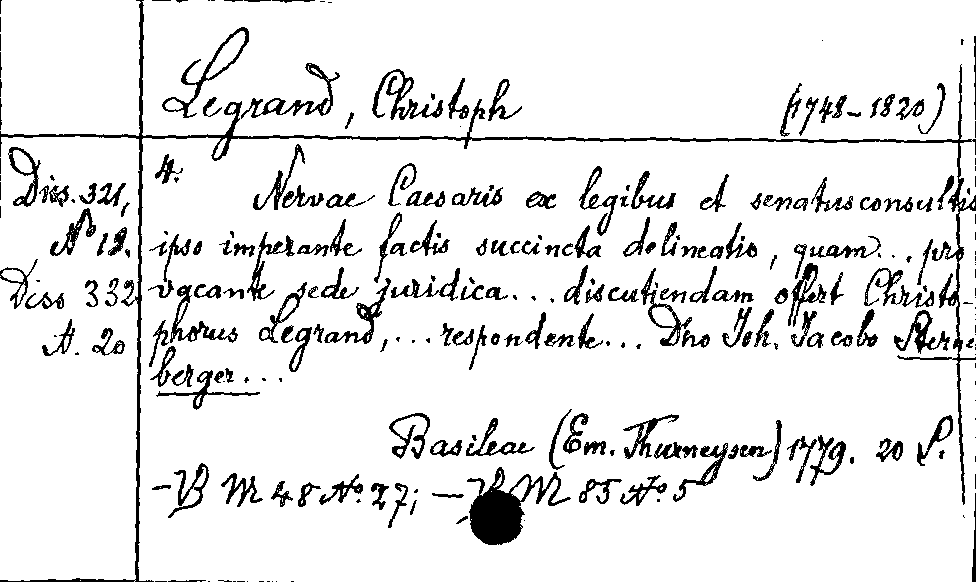 Legrand, Christoph (1748-1820)
Diss. 321,
No 12.
Diss 332
No. 20
4. Nervae Caesaris ex legibus et senatusconsultis
ipso imperante factis succincta delineatio, quam... pro
vacante sede juridica... discutiendam offert Christo-
phorus Legrand,... respondente... Dno Joh. Jacobo Sterne
berger...
Basileae (Em. Thurneysen) 1779. 20 S.
- VB M 48 No. 27; - VB M 85 No 5